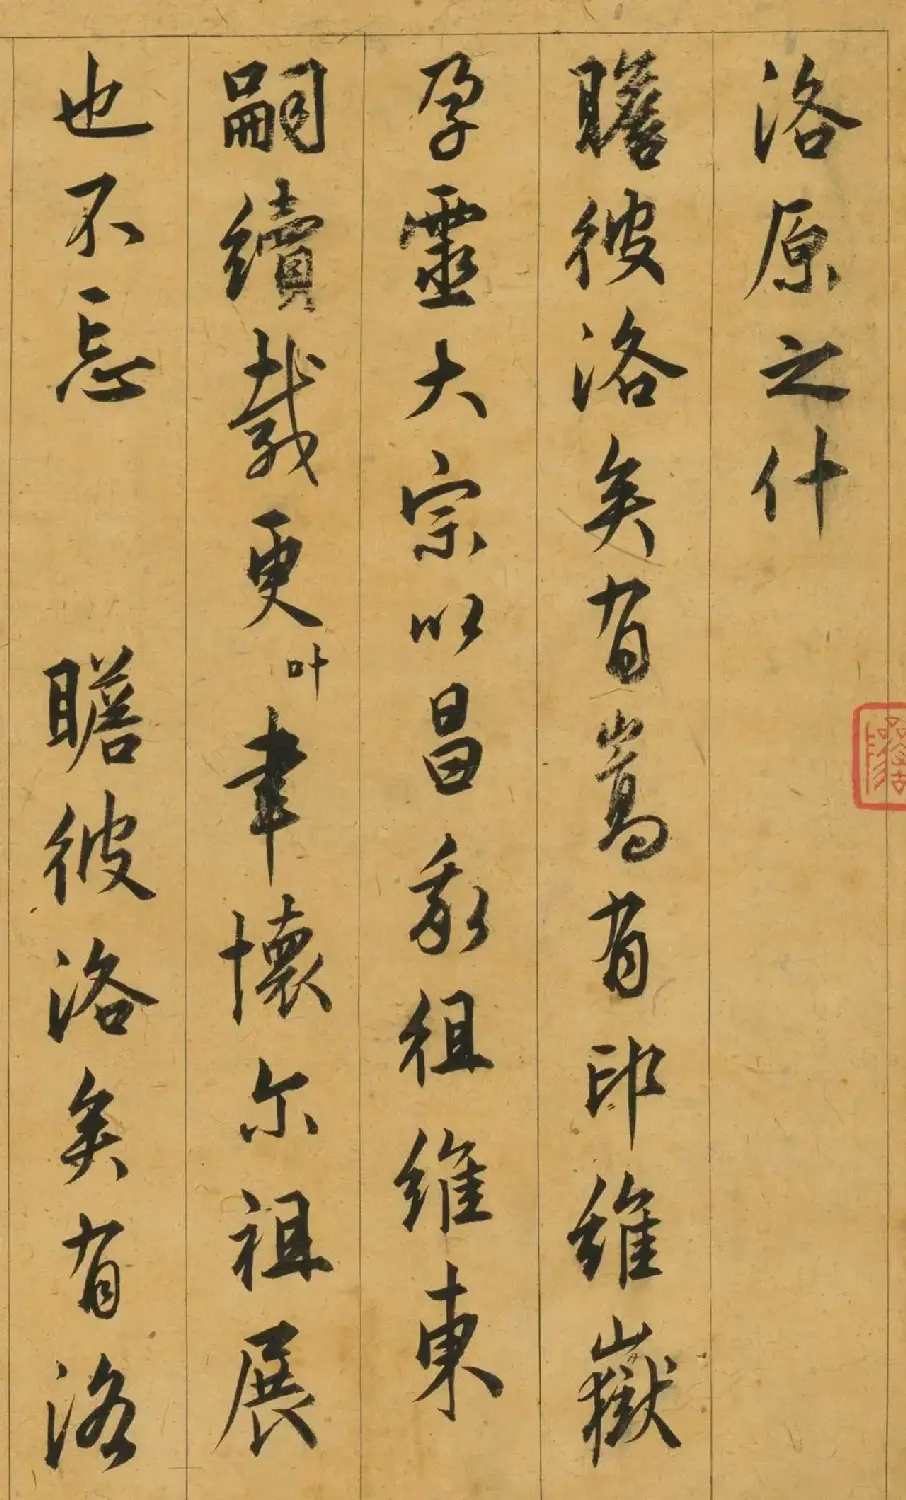 洛原之什
瞻彼洛矣有嵩有邙維嶽
孕靈大宗以昌我徂維東
嗣續載更叶聿懷尔祖展
也不忘 瞻彼洛矣有洛